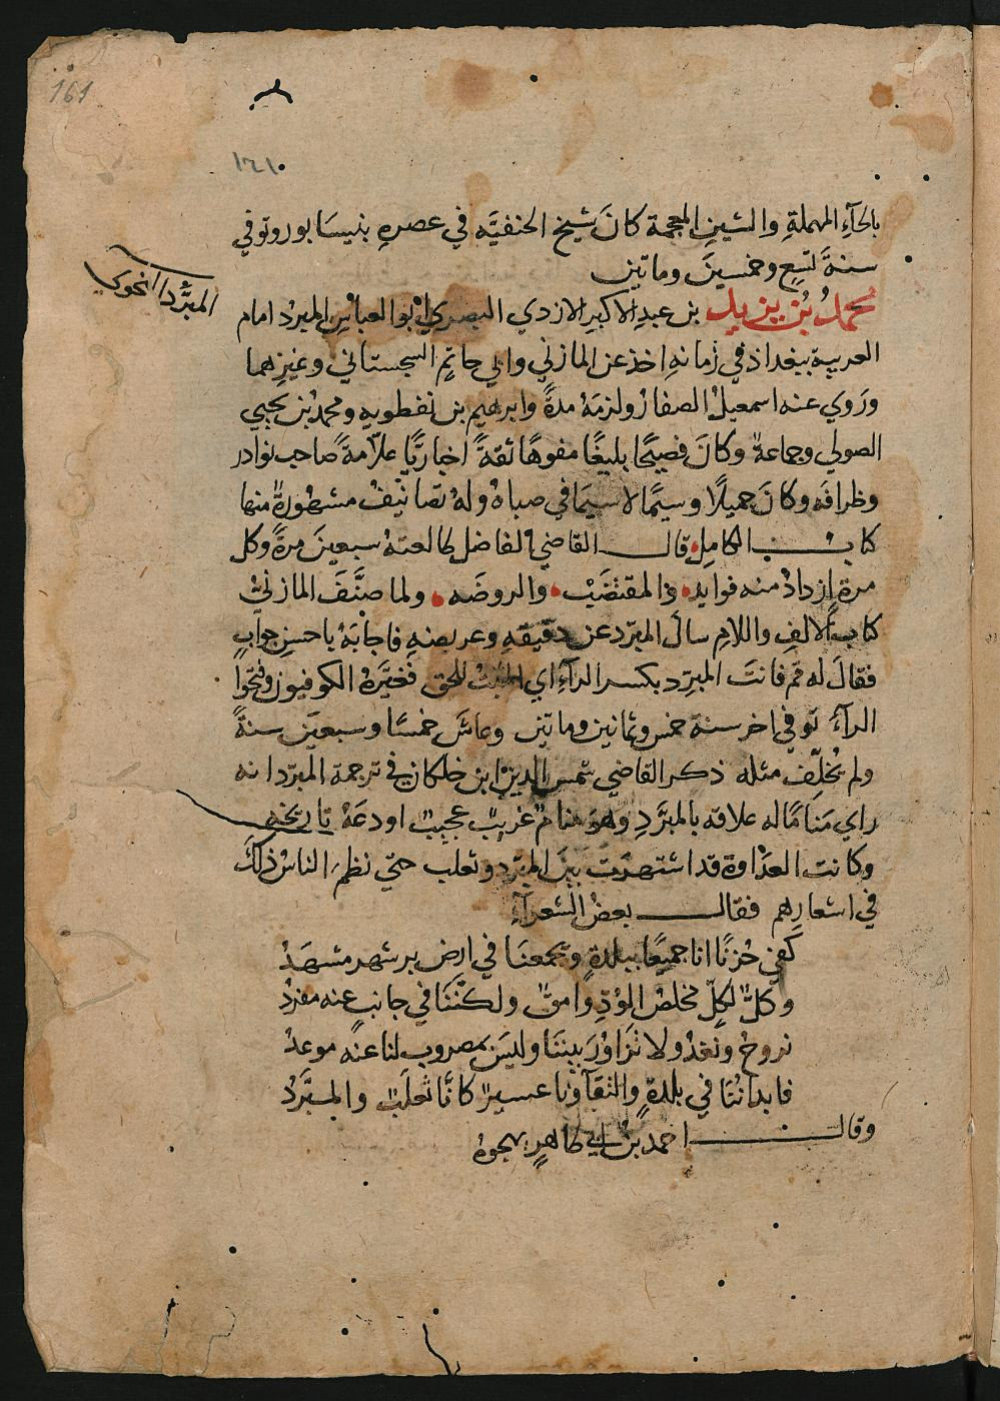 161
١٦١
بالحآء المهملةِ والشين المعجمة كانَ شيخ الحنفيَّه في عصرهِ بنيسَابور وتوفي
سنةَ تسِع وخمسينَ وماتين
المبرَّد النحوي
محمدُ بْن يزيد بن عبدِ الاكبرِ الازدي البصري ابو العباس المبرّد امام
العربية ببغداذ في زمانهِ اخذ عن المازني وابي حاتم السجستاني وغيرهما
ورَوي عنه اسمعيلُ الصفارُ ولزمَهُ مدةً وابرهيم بن نفطويهِ ومحمدُ بن يحيي
الصولي وجماعة وكانَ فصيحًا بليغًا مفوهًا ثقةً اخباريًّا علاّمةً صاحب نوادر
وظرافَه وكانَ جميلًا وسيمًا لا سيما في صباهُ ولهُ تصانيفُ مشهُورةٌ منها
كتاب الكامِل قال القاضي الفاضل طالعتهُ سبعينَ مرةً وكل
مرةٍ ازدادُ منه فوايد والمقتضَبُ والروضَه ولما صنَّفَ المازنيُّ
كتابَ الالفِ واللامِ سال المبرّد عن دقيقهِ وعريصهِ فاجابَهُ باحسنِ جوابٍ
فقالَ له قم فانتَ المبرّد بكسر الرآءِ اي المثبتُ للحق فغيَّرهُ الكوفيون وفتحوا
الرآءَ توفي اخر سنة خمس وثمانين وماتين وعاشَ خمسًا وسبعين سنةً
ولم يُخلِّف مثله ذكر القاضي شمس الدين ابن خلكان في ترجمة المبرّد انه
راي مَنَامًا له علاقه بالمبرَّدِ وهو منام غريبٌ عجيبٌ اودعَهُ تاريخه
وكانت العدَاوة قد اشتهرت بينَ المبرّد وثعلب حتي نظم الناسُ ذلكَ
في اشعارِهم فقال بعضُ الشعرآءِ
كَفي حُزنًا انا جميعًا ببلدةٍ ويجمعنَا في ارض برشهر مشهَدُ
وكلٌّ لكلٍّ مخلصُ الوُدِّ وامقٌ ولكنَّنَا في جانبٍ عنه مفردُ
نروحُ ونغدُو لا تزَاوُرَ بيننَا وليسَ بمضروبٍ لنا عنه موعدُ
فابدانُنَا في بلدةٍ والتقآؤنا عسيرٌ كانَّا ثعلَبٌ والمبرَّدُ
وقال احمد بن ابي طاهرٍ يهجوهُ